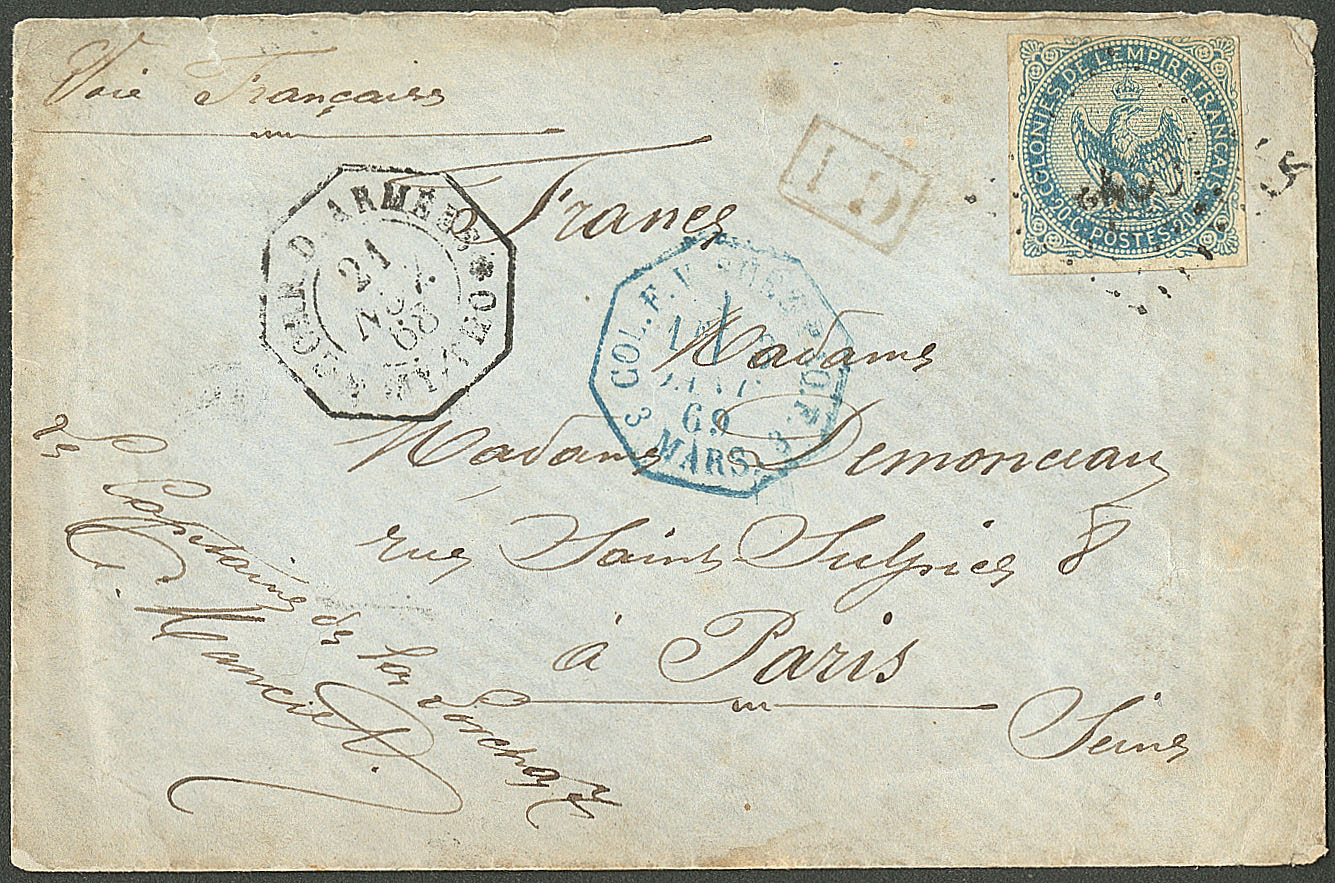 Voie Française
COLONIES DE L'EMPIRE FRANÇAIS
20c. POSTES 20c.
PD
France
CORR. D. ARMÉE
21
NOV.
68
MYTHO
COL. F. V. SUEZ
JANV
69
3 MARS. 3
Madame
Madame Demonceau
rue Saint-Sulpice 8
à Paris
Seine
Le Capitaine de